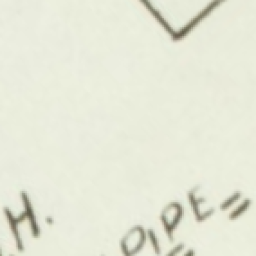 H.
PIPE=